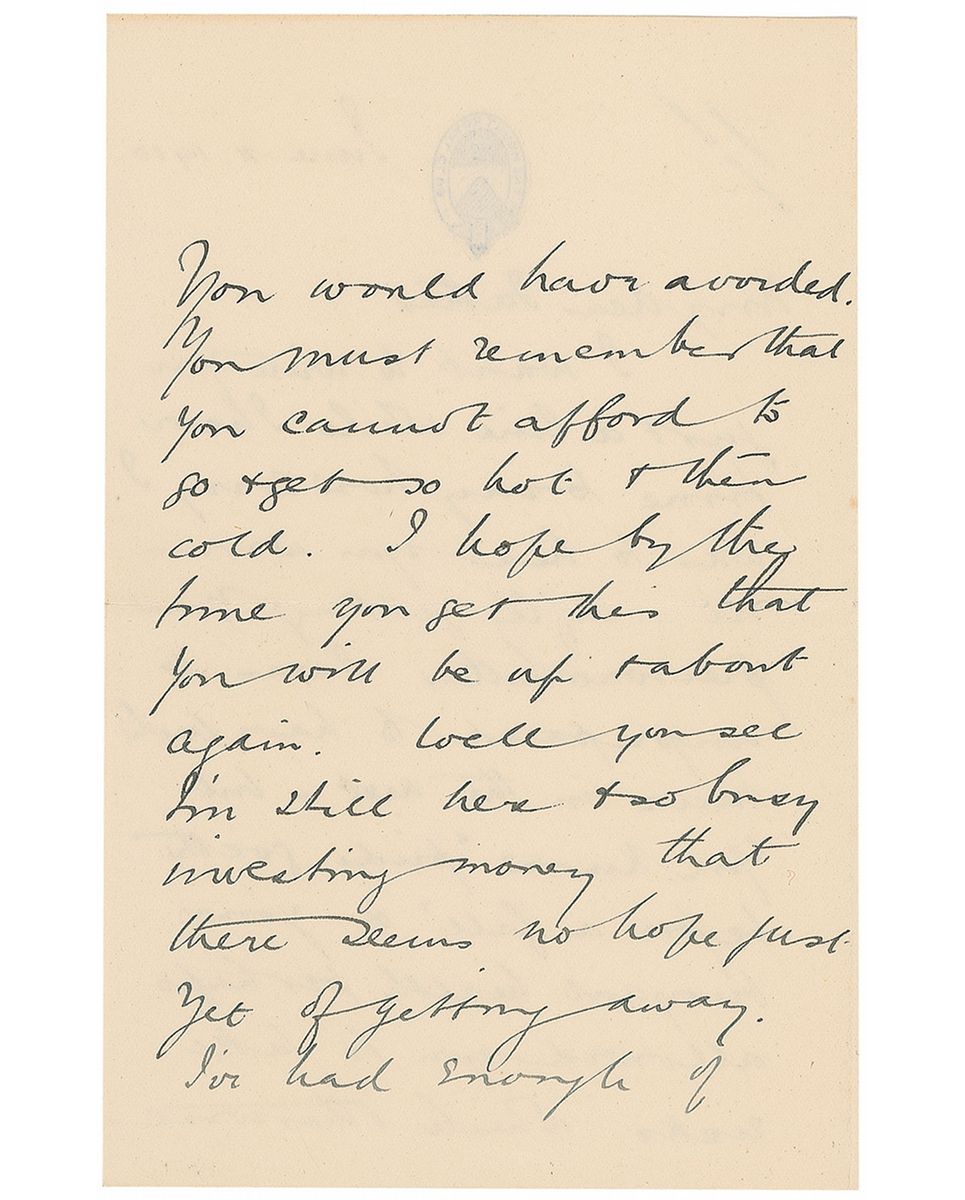 You would have avoided.
You must remember that
you cannot afford to
go & get so hot & then
cold. I hope by the
time you get this that
you will be up & about
again. Well you see
I'm still here & so busy
investing money that
there seems no hope just
yet of getting away.
I've had enough of